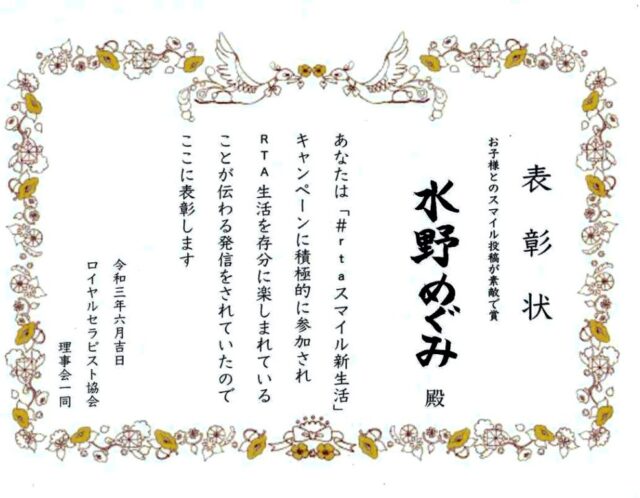 表彰状
お子様とのスマイル投稿が素敵で賞
水野めぐみ 殿
あなたは「#rtaスマイル新生活」
キャンペーンに積極的に参加され
RTA生活を存分に楽しまれている
ことが伝わる発信をされていたので
ここに表彰します
令和三年六月吉日
ロイヤルセラピスト協会
理事会一同